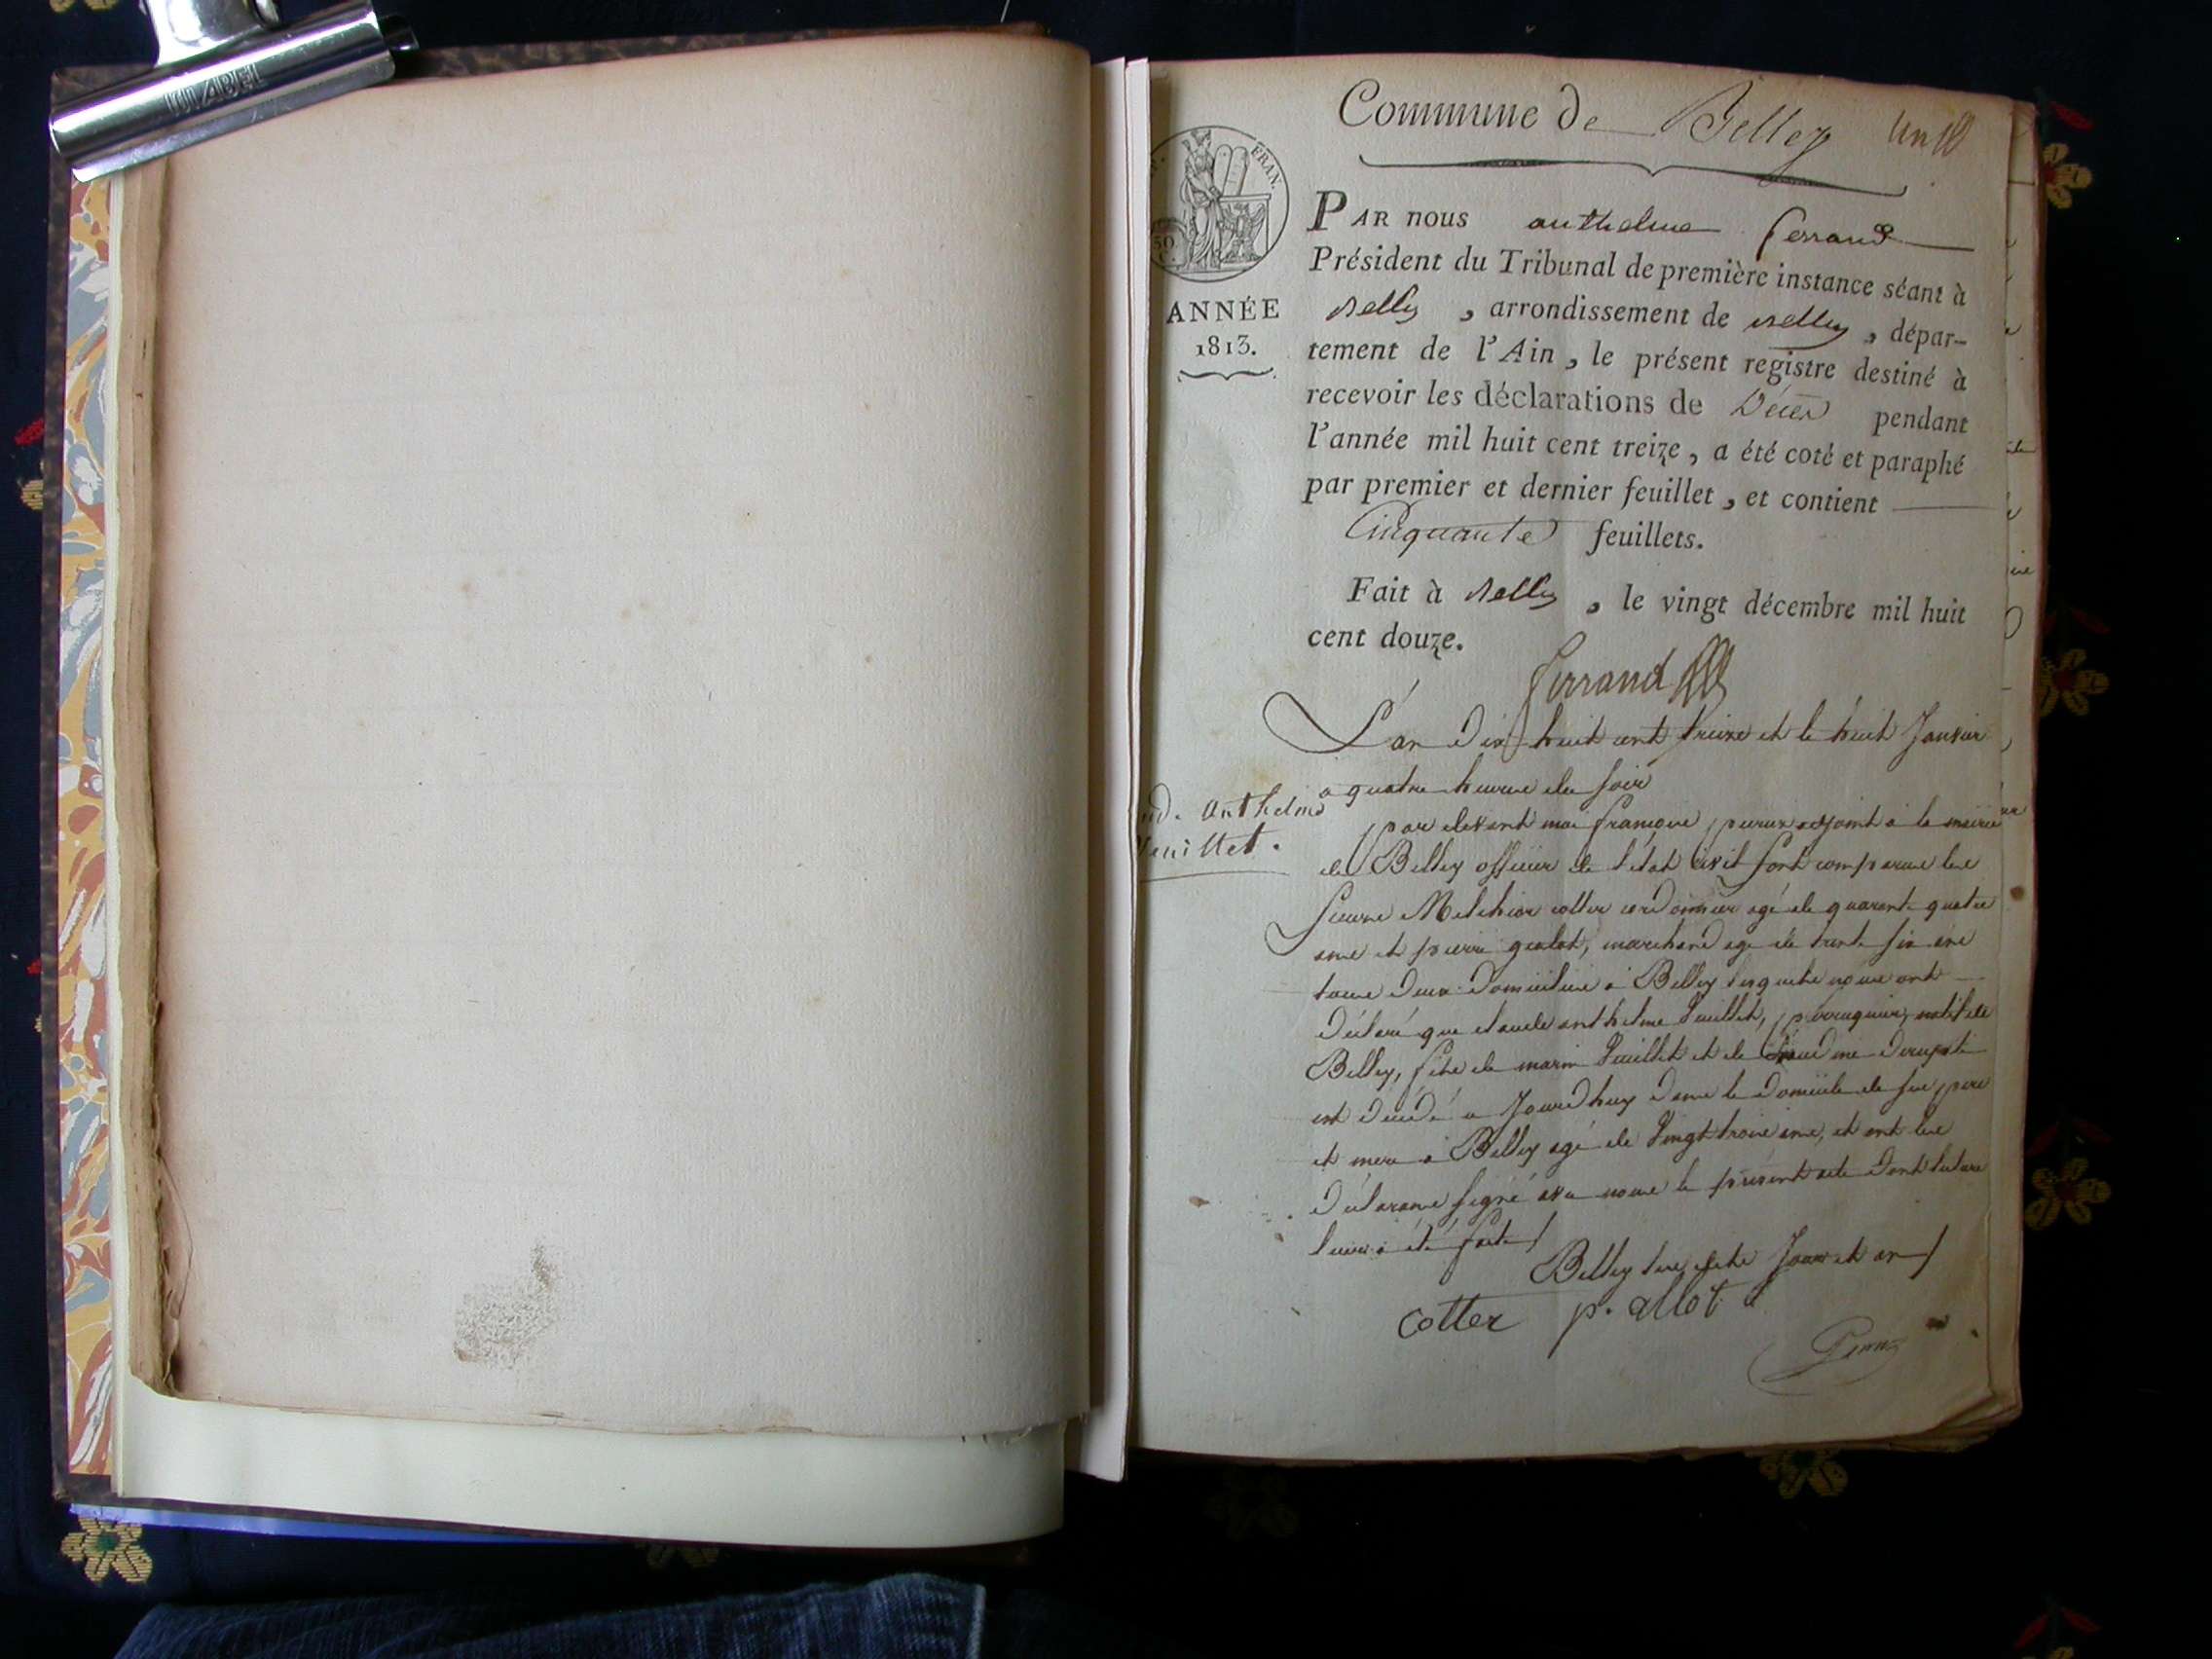 Commune de Belley
FRAN.
50
C.
ANNÉE
1813.
PAR nous anthelme ferrand
Président du Tribunal de première instance séant à
Belley , arrondissement de Belley , dépar-
tement de l'Ain , le présent registre destiné à
recevoir les déclarations de Décès pendant
l'année mil huit cent treize , a été coté et paraphé
par premier et dernier feuillet , et contient
Cinquante feuillets.
Fait à Belley , le vingt décembre mil huit
cent douze.
ferrand
L'an dix huit cent treize et le huit Janvier
a quatre heures du soir
ud. Anthelme
par devant moi françois adjoint à la mairie
de Belley officier de l'état civil sont comparus les
sieurs Melchior cotter cordonnier agé de quarante quatre
ans et pierre marchand agé de trente six ans
tous deux domiciliés à Belley lesquels nous ont
déclaré que claude anthelme Vuillet, perruquier, natif de
Belley, fils de marin Vuillet et de
est décédé aujourdhuy dans le domicile de ses père
et mere à Belley agé de Vingt trois ans, et ont les
déclarans signé avec nous le présent acte dont lecture
leur a été faite /
Belley les dits Jour et an /
cotter p. allot